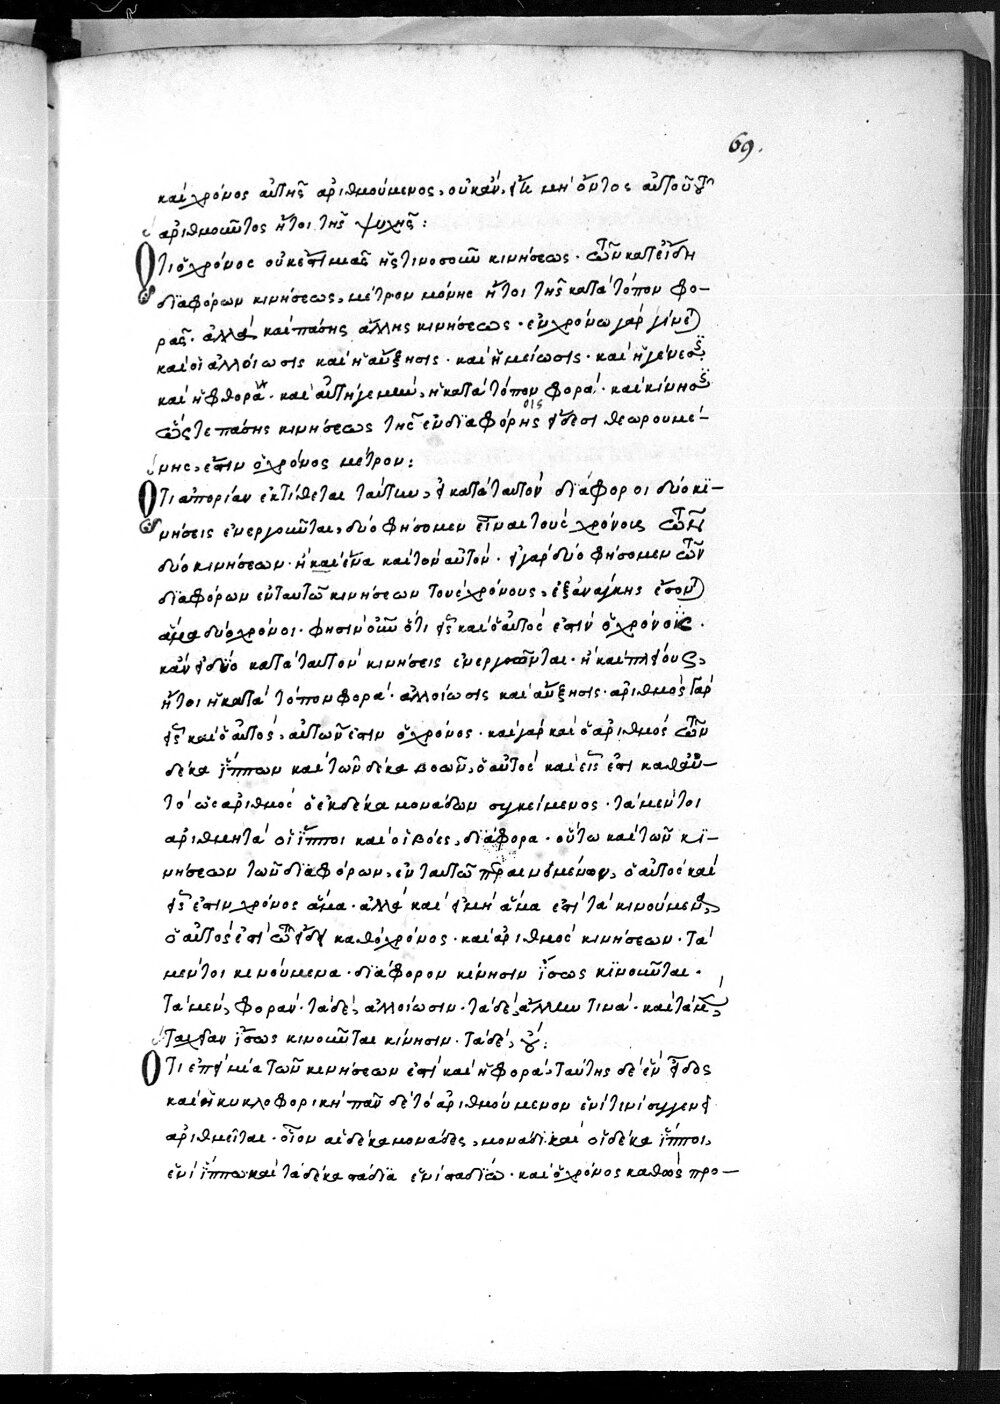 69.
καὶ χρόνος αὐτῆς ἀριθμούμενος, οὐκ ἂν εἴη μὴ ὄντος αὐτοῦ τοῦ
ἀριθμοῦντος ἤτοι τῆς ψυχῆς:
Ὅτι ὁ χρόνος οὐκ ἔστι μιᾶς ἧς τινοσοῦν κινήσεως· τῶν κατ' εἴδη
διαφόρων κινήσεως, μέτρον μόνης ἤτοι τῆς κατὰ τόπον φο-
ρᾶς· ἀλλὰ καὶ πάσης ἄλλης κινήσεως· ἐν χρόνω γὰρ γίνεται
καὶ οἱ ἀλλοίωσις καὶ ἡ αὔξησις· καὶ ἡ μείωσις· καὶ ἡ γένεσις
καὶ ἡ φθορὰ· καὶ αὐτὴ γε μὴν, ἡ κατὰ τόπον φορά· καὶ κίνησις
ὥστε πάσης κινήσεως τῆς ἐν διαφόροις εἴδεσι θεωρουμέ-
νης, ἔστιν ὁ χρόνος μέτρον:
Ὅτι ἀπορίαν ἐκτίθεται ταύτην, εἰ κατὰ ταυτὸν διάφοροι δύο κϊ-
νήσεις ἐνεργοῦνται, δύο φήσομεν εἶναι τοὺς χρόνους τῶν
δύο κινήσεων· ἢ καὶ ἕνα καὶ τὸν αὐτόν· εἰ γὰρ δύο φήσομεν τῶν
διαφόρων ἐν ταυτῶ κινήσεων τοὺς χρόνους, ἐξ ἀνάγκης ἔσονται
ἅμα δύο χρόνοι· φησὶν οὖν ὅτι εἷς καὶ ὁ αὐτός ἐστιν ὁ χρόνος·
κἂν εἰ δύο κατὰ ταυτὸν κινήσεις ἐνεργοῦνται· ἢ καὶ πλείους,
ἤτοι ἡ κατὰ τόπον φορά· ἀλλοίωσις καὶ αὔξησις· ἀριθμὸς γὰρ
εἷς καὶ ὁ αὐτὸς, αὐτῶν ἐστιν ὁ χρόνος· καὶ γὰρ καὶ ὁ ἀριθμὸς τῶν
δέκα ἵππων καὶ τῶν δέκα βοῶν, ὁ αὐτός καὶ εἷς ἐστι καθ' αὑ-
τὸ ὡς ἀριθμός ὁ ἐκ δέκα μονάδων συγκείμενος· τὰ μέντοι
ἀριθμητὰ οἱ ἵπποι καὶ οἱ βόες, διάφορα· οὕτω καὶ τῶν κϊ-
νήσεων τῶν διαφόρων, ἐν ταυτῶ περαινομένων, ὁ αὐτός καὶ
εἷς ἐστιν χρόνος ἅμα· ἀλλὰ καὶ εἰ μὴ ἅμα ἐστὶ τὰ κινούμενα,
ὁ αὐτός ἐστὶ τῶ εἴδει καθὸ χρόνος· καὶ ἀριθμός κινήσεων· τὰ
μέντοι κινούμενα· διάφορον κίνησιν ἴσως κϊνοῦνται·
τὰ μὲν, φοράν· τὰ δέ, ἀλλοίωσιν· τὰ δέ, ἄλλην τινά· καὶ τὰ μέν,
ταχεῖαν ἴσως κινοῦνται κίνησιν· τὰ δέ, οὔ:
Ὅτι ἐπεὶ μία τῶν κινήσεων ἐστὶ καὶ ἡ φορά· ταύτης δὲ ἓν εἶδος
καὶ ἡ κυκλοφορικὴ πᾶν δὲ τὸ ἀριθμούμενον ἑνί τινι συγγενεῖ
ἀριθμεῖται· οἷον αἱ δέκα μονάδες, μονάδι· καὶ οἱ δέκα ἵπποι,
ἑνὶ ἵππω· καὶ τὰ δέκα στάδια ἑνὶ σταδίω· καὶ ὁ χρόνος καθὼς προ-